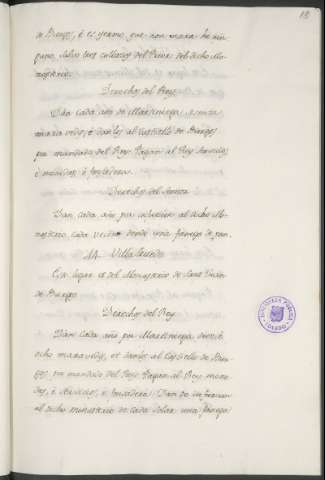 18
de Burgos, é es yermo que non mora hi nin-
guno, salvo tres collazos del Prior del dicho Mo-
nasterio.
Derechos del Rey
Dan cada año de Martiniega
maravedis, é danlos al Castiello de Burgos
por mandado del Rey. Pagan al Rey servicios,
é monedas, é fonsadera.
Derechos del Señor
Dan cada año por al dicho Mo-
nasterio cada vecino donde una fanega de pan.
Villa
Este logar es del Monesterio de Sant Juan
de Burgos
Derechos del Rey
Dan cada año por Martiniega
ocho maravedis, et danlos al Castiello de Bur-
gos, por mandado del Rey. Pagan al Rey mone-
das, é servicios, é fonsadera. Dan de infurcion
al dicho monesterio de cada solar una fanega
BIBLIOTECA PUBLICA
TOLEDO